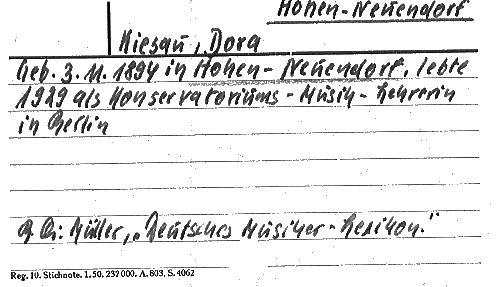 Hohen-Neuendorf
Kiesau, Dora
Geb. 3. 11. 1894 in Hohen-Neuendorf, lebte
1929 als Konservatoriums-Musik-Lehrerin
in Berlin
Müller, „Deutsches Musiker-Lexikon."
Reg. 10. Stichnote. 1. 50. 232000. A. 803. S. 4062